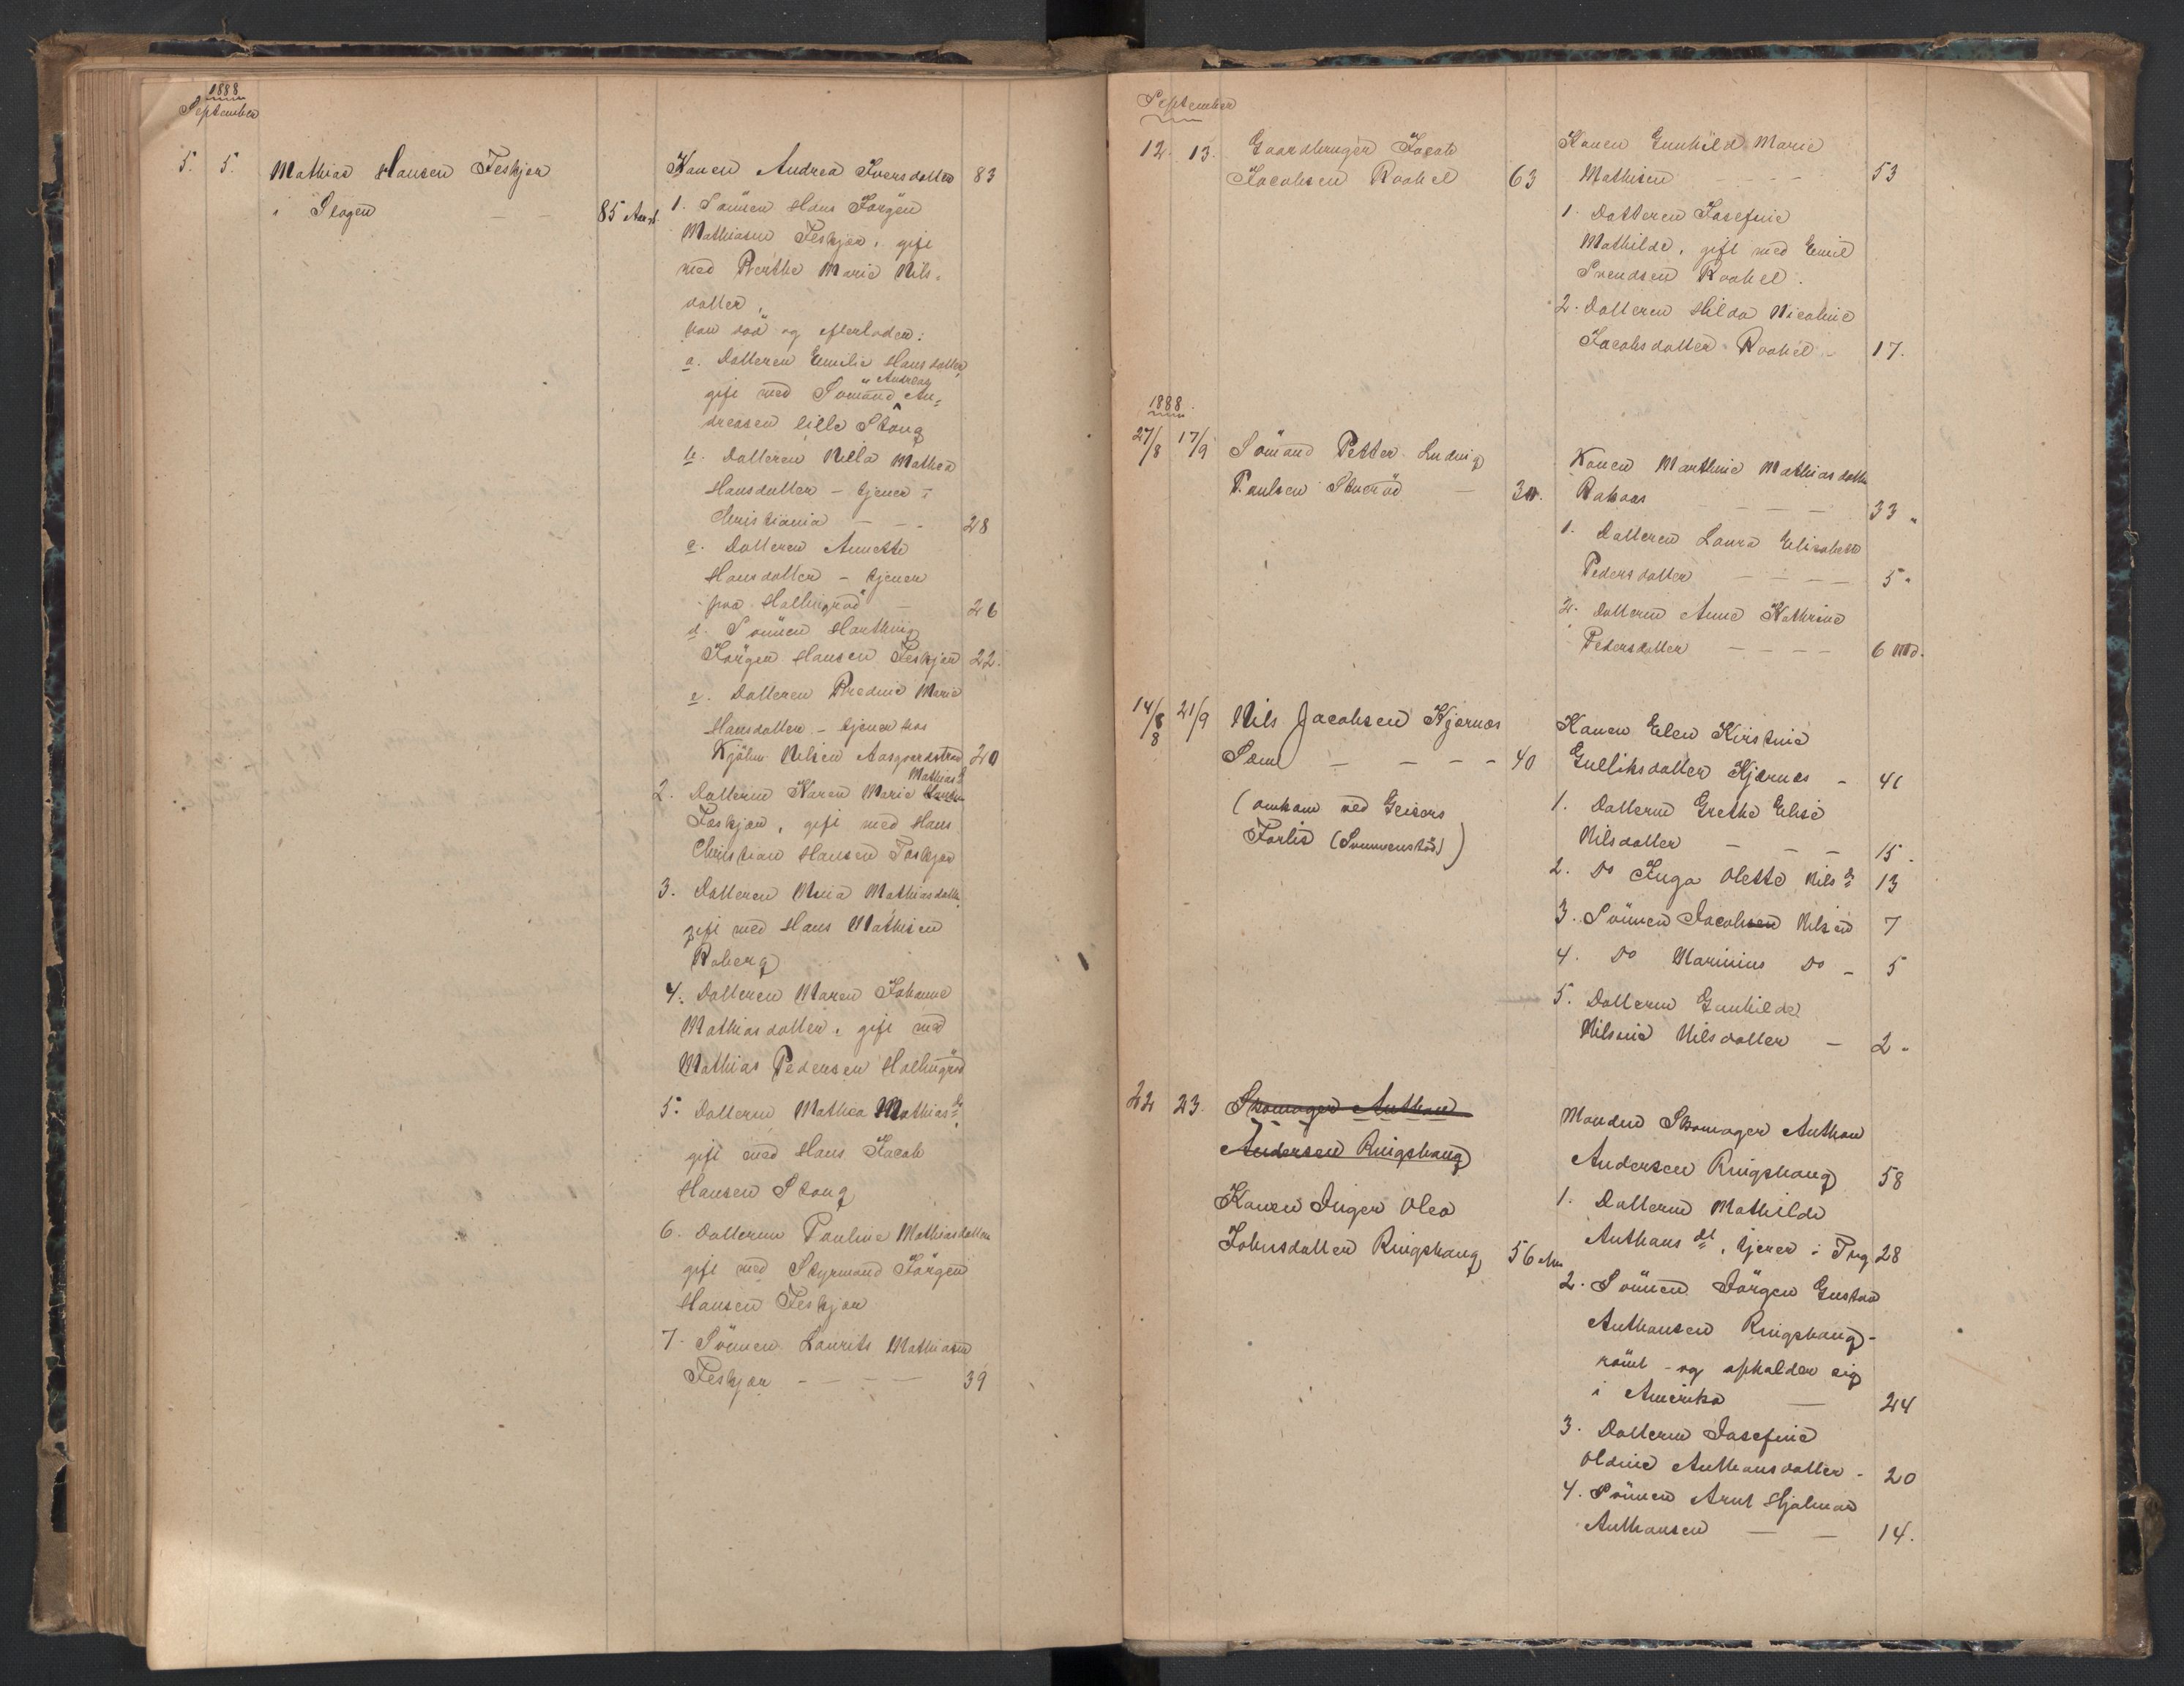 1888
September
5. 5. Mathias Hansen Feskjær
i Slagen - - 85 Aar.
Konen Andrea Iversdatter 83
1. Sönnen Hans Jørgen
Mathiasen Feskjær, gift
med Berthe Marie Nils-
datter,
han död og efterlader:
a. Datteren Emilie Hansdatter,
gift med Sömand Andreas An-
dreasen lille Stang
b. Datteren Nilla Mathea
Hansdatter - tjener i
Christiania - - - 28
c. Datteren Annette
Hansdatter - tjener
paa Hallingröd - 26
d. Sönnen Harthvig
Jörgen Hansen Feskjær 22.
e. Datteren Bredine Marie
Hansdatter - tjener hos
Kjöbm. Nilsen Aasgaardstrand 20
2. Datteren Karen Marie Mathiasd
Feskjær, gift med Hans
Christian Hansen Feskjær
3. Datteren Maria Mathiasdatter
gift med Hans Mathisen
Roberg
4. Datteren Maren Johanne
Mathiasdatter, gift med
Mathias Pedersen Hallingröd
5. Datteren Mathea Mathiasd
gift med Hans Jacob
Hansen Stang
6. Datteren Pauline Mathiasdatter
gift med Styrmand Jörgen
Hansen Feskjær
7. Sönnen Laurits Mathiasen
Feskjær - - - - 39
September
12. 13. Gaardbruger Jacob
Jacobsen Roahel 63
Konen Gunhild Marie
Mathisen - - - 53
1. Datteren Josefine
Mathilde, gift med Emil
Svendsen Roahel.
2. Datteren Hilda Nicoline
Jacobsdatter Roahel - 17.
1888.
27/8 17/9 Sömand Petter Ludvig
Paulsen - 30.
Konen Marthine Mathiasdatter
- - - - 33 "
1. Datteren Laura Elisabeth
Pedersdatter - - - - 5 "
2. Datteren Anne Kathrine
Pedersdatter - - - - 6 Md.
14/8 8 21/9 Nils Jacobsen Kjærnæs
Sem - - - - 40
(omkom ved Geisers
Forlis )
Konen Elen Kirstine
Gulliksdatter Kjærnæs - 41
1. Datteren Grethe Elise
Nilsdatter - - - 15.
2. Do Inga Olette Nilsd 13
3. Sönnen Jacobsen Nilsen 7
4. Do Marinius Do - 5
5. Datteren Gunhilda
Nilsine Nilsdatter - 2 "
22 23. Skomager Anthon
Andersen Ringshaug
Konen Inger Olea
Johnsdatter Ringshaug 56 Aar
Manden Skomager Anthon
Andersen Ringshaug 58
1. Datteren Mathilde
Anthonsdt, tjener i Tbg 28
2. Sönnen Jörgen Gustav
Anthonsen Ringshaug -
römt - og opholder sig
i Amerika - 24
3. Datteren Josefine
Oldine Anthonsdatter - 20
4. Sönnen Arnt Hjalmar
Anthonsen - - 14.